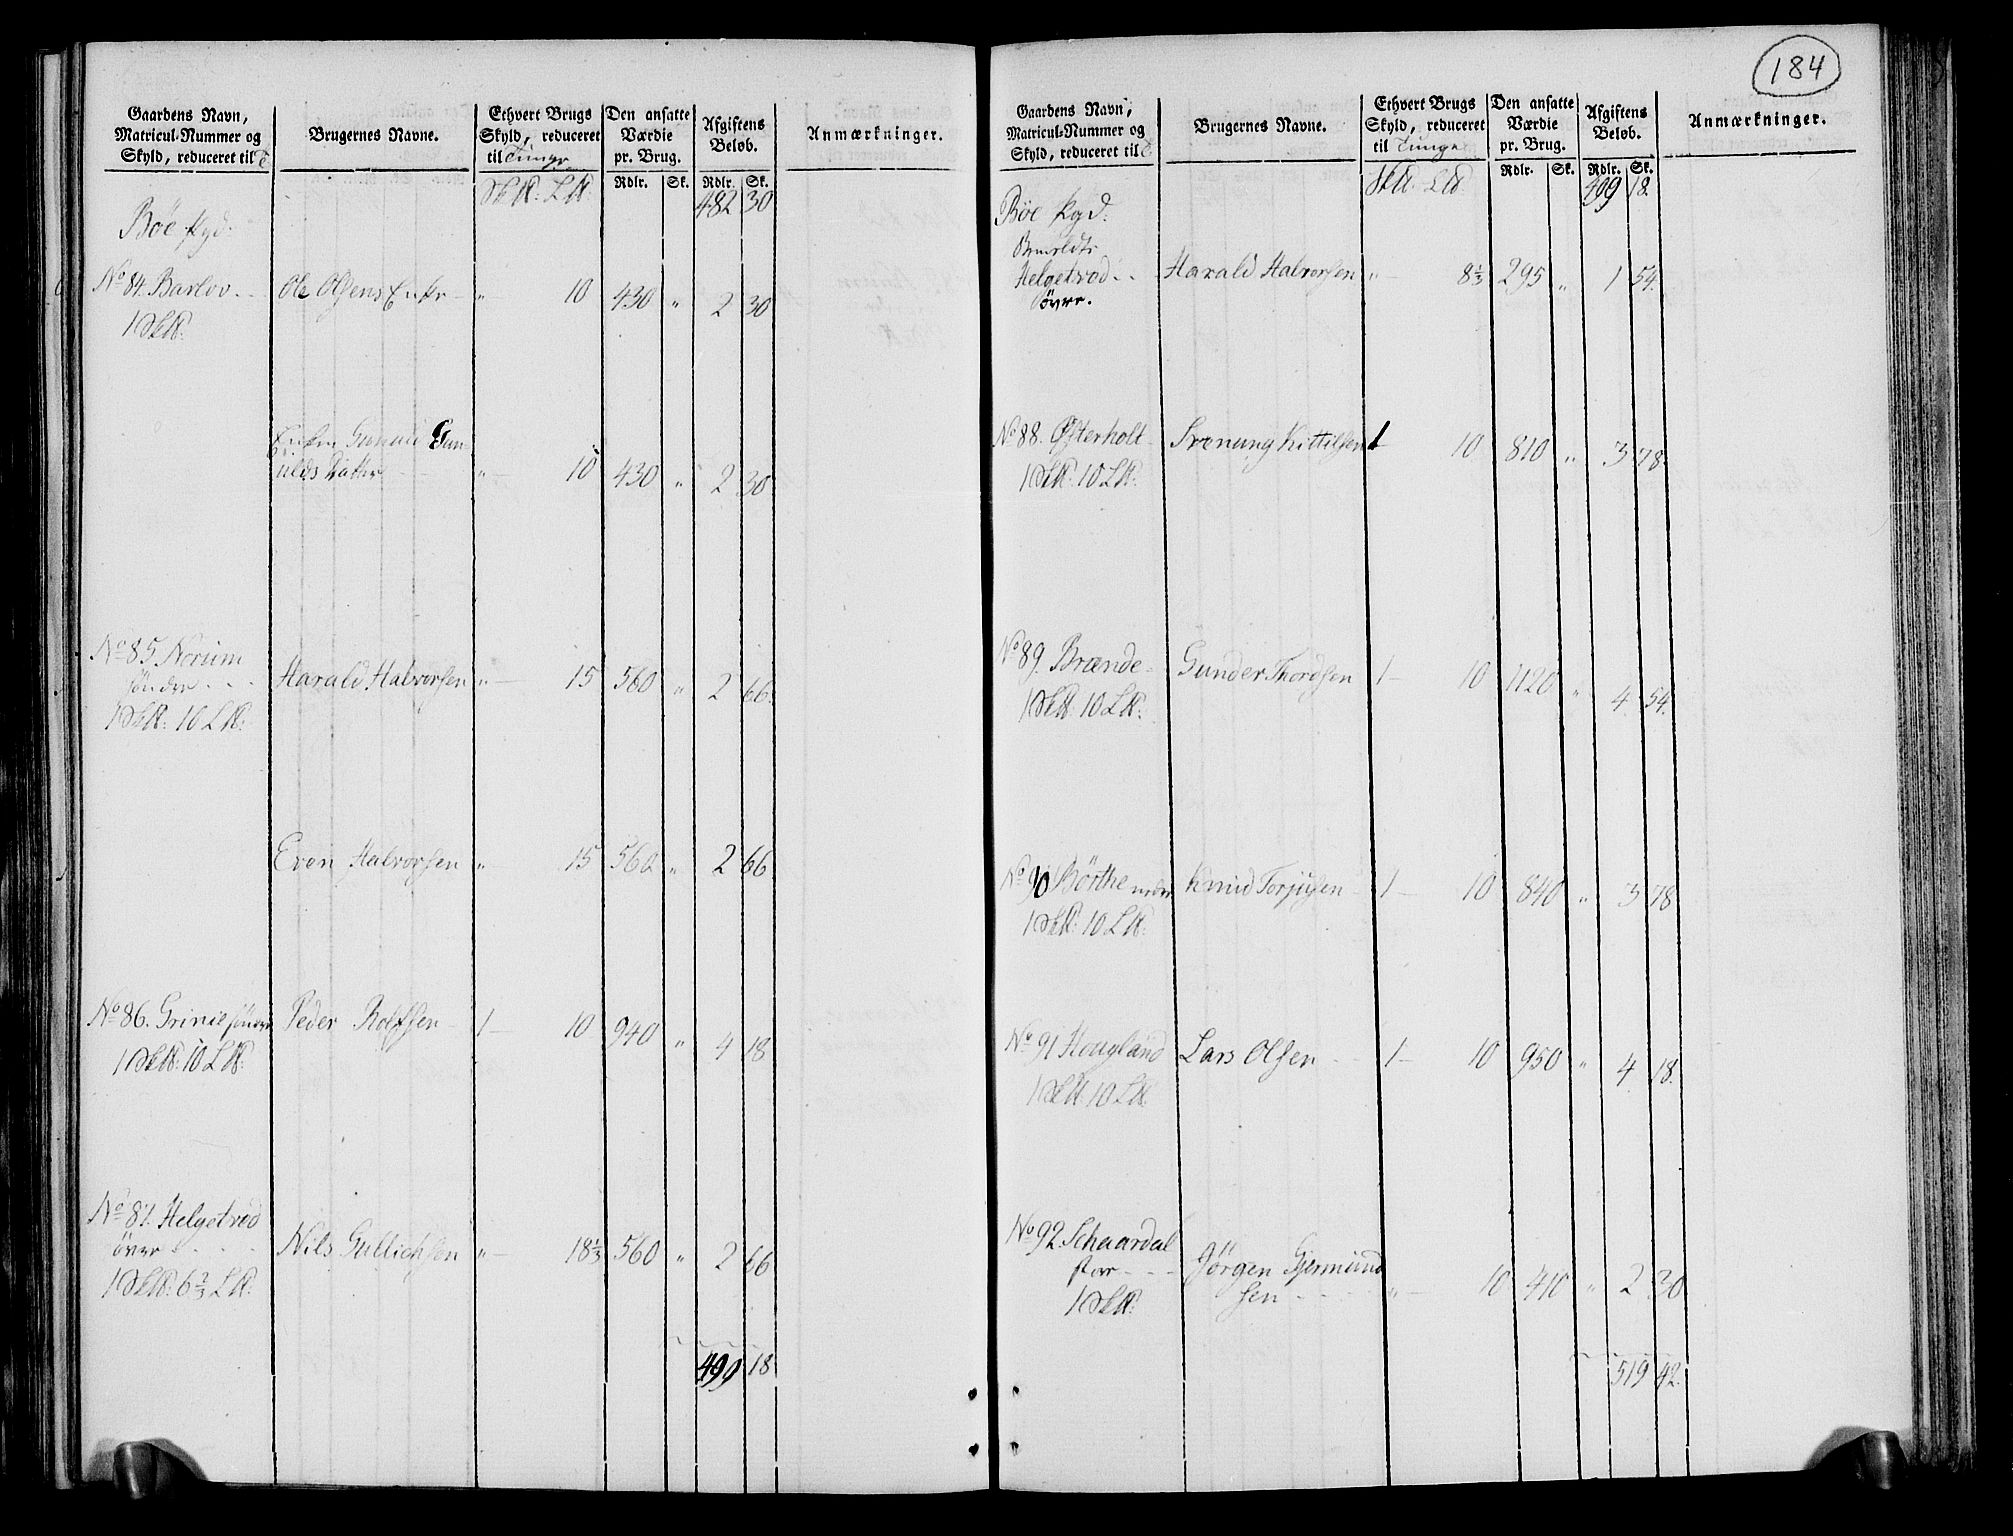 184
Gaardens Navn, Matricul-Nummer og Skyld, reduceret til T
Brugernes Navne.
Ethvert Brugs Skyld, reduceret til Tunge
Den ansatte Værdie pr. Brug.
Afgiftens Beløb.
Anmærkninger.
Rdlr. Sk. Rdlr. Sk.
S℔: L℔:
482 30
Böe Pgd:
No 84. Barlov Ole Olsens Enke " 10 430 " 2 30
1 S℔:
Enken Gunnild Gun
nilds Datter " 10 430 " 2 30
No 85 Norum
söndre Harald Halvorsen " 15 560 " 2 66.
1 S℔: 10 L℔:
Even Halvorsen " 15 560 " 2 66
No 86. Grinie söndre Peder Rolfsen 1 10 940 " 4 18
1 S℔: 10 L℔:
No 87. Helgetrod
övre Nils Gullichsen " 18 1/3 560 " 2 66
1 S℔: 6 2/3 L℔:
499 18
Gaardens Navn, Matricul-Nummer og Skyld, reduceret til T
Brugernes Navne.
Ethvert Brugs Skyld, reduceret til Tunge
Den ansatte Værdie pr. Brug.
Afgiftens Beløb.
Anmærkninger.
Rdlr. Sk. Rdlr. Sk.
S℔: L℔
499 18.
Böe Pgd:
Helgetrod Harald Halvorsen " 8 1/3 295 " 1 54.
övre.
No 88. Østerholt Svenung Kittilsen 1 10 810 " 3 78.
1 S℔: 10 L℔:
No 89. Brænde Gunder Thordsen 1 10 1120 " 4 54.
1 S℔: 10 L℔:
No 90 Börthe nedre Knud Torjusen 1 10 840 " 3 78
1 S℔: 10 L℔:
No 91 Hougland Lars Olsen 1 10 950 " 4 18.
1 S℔: 10 L℔:
No 92. Schaardal Jörgen Gjermund
stor sen " 10 410 " 2 30
1 S℔:
519 42.